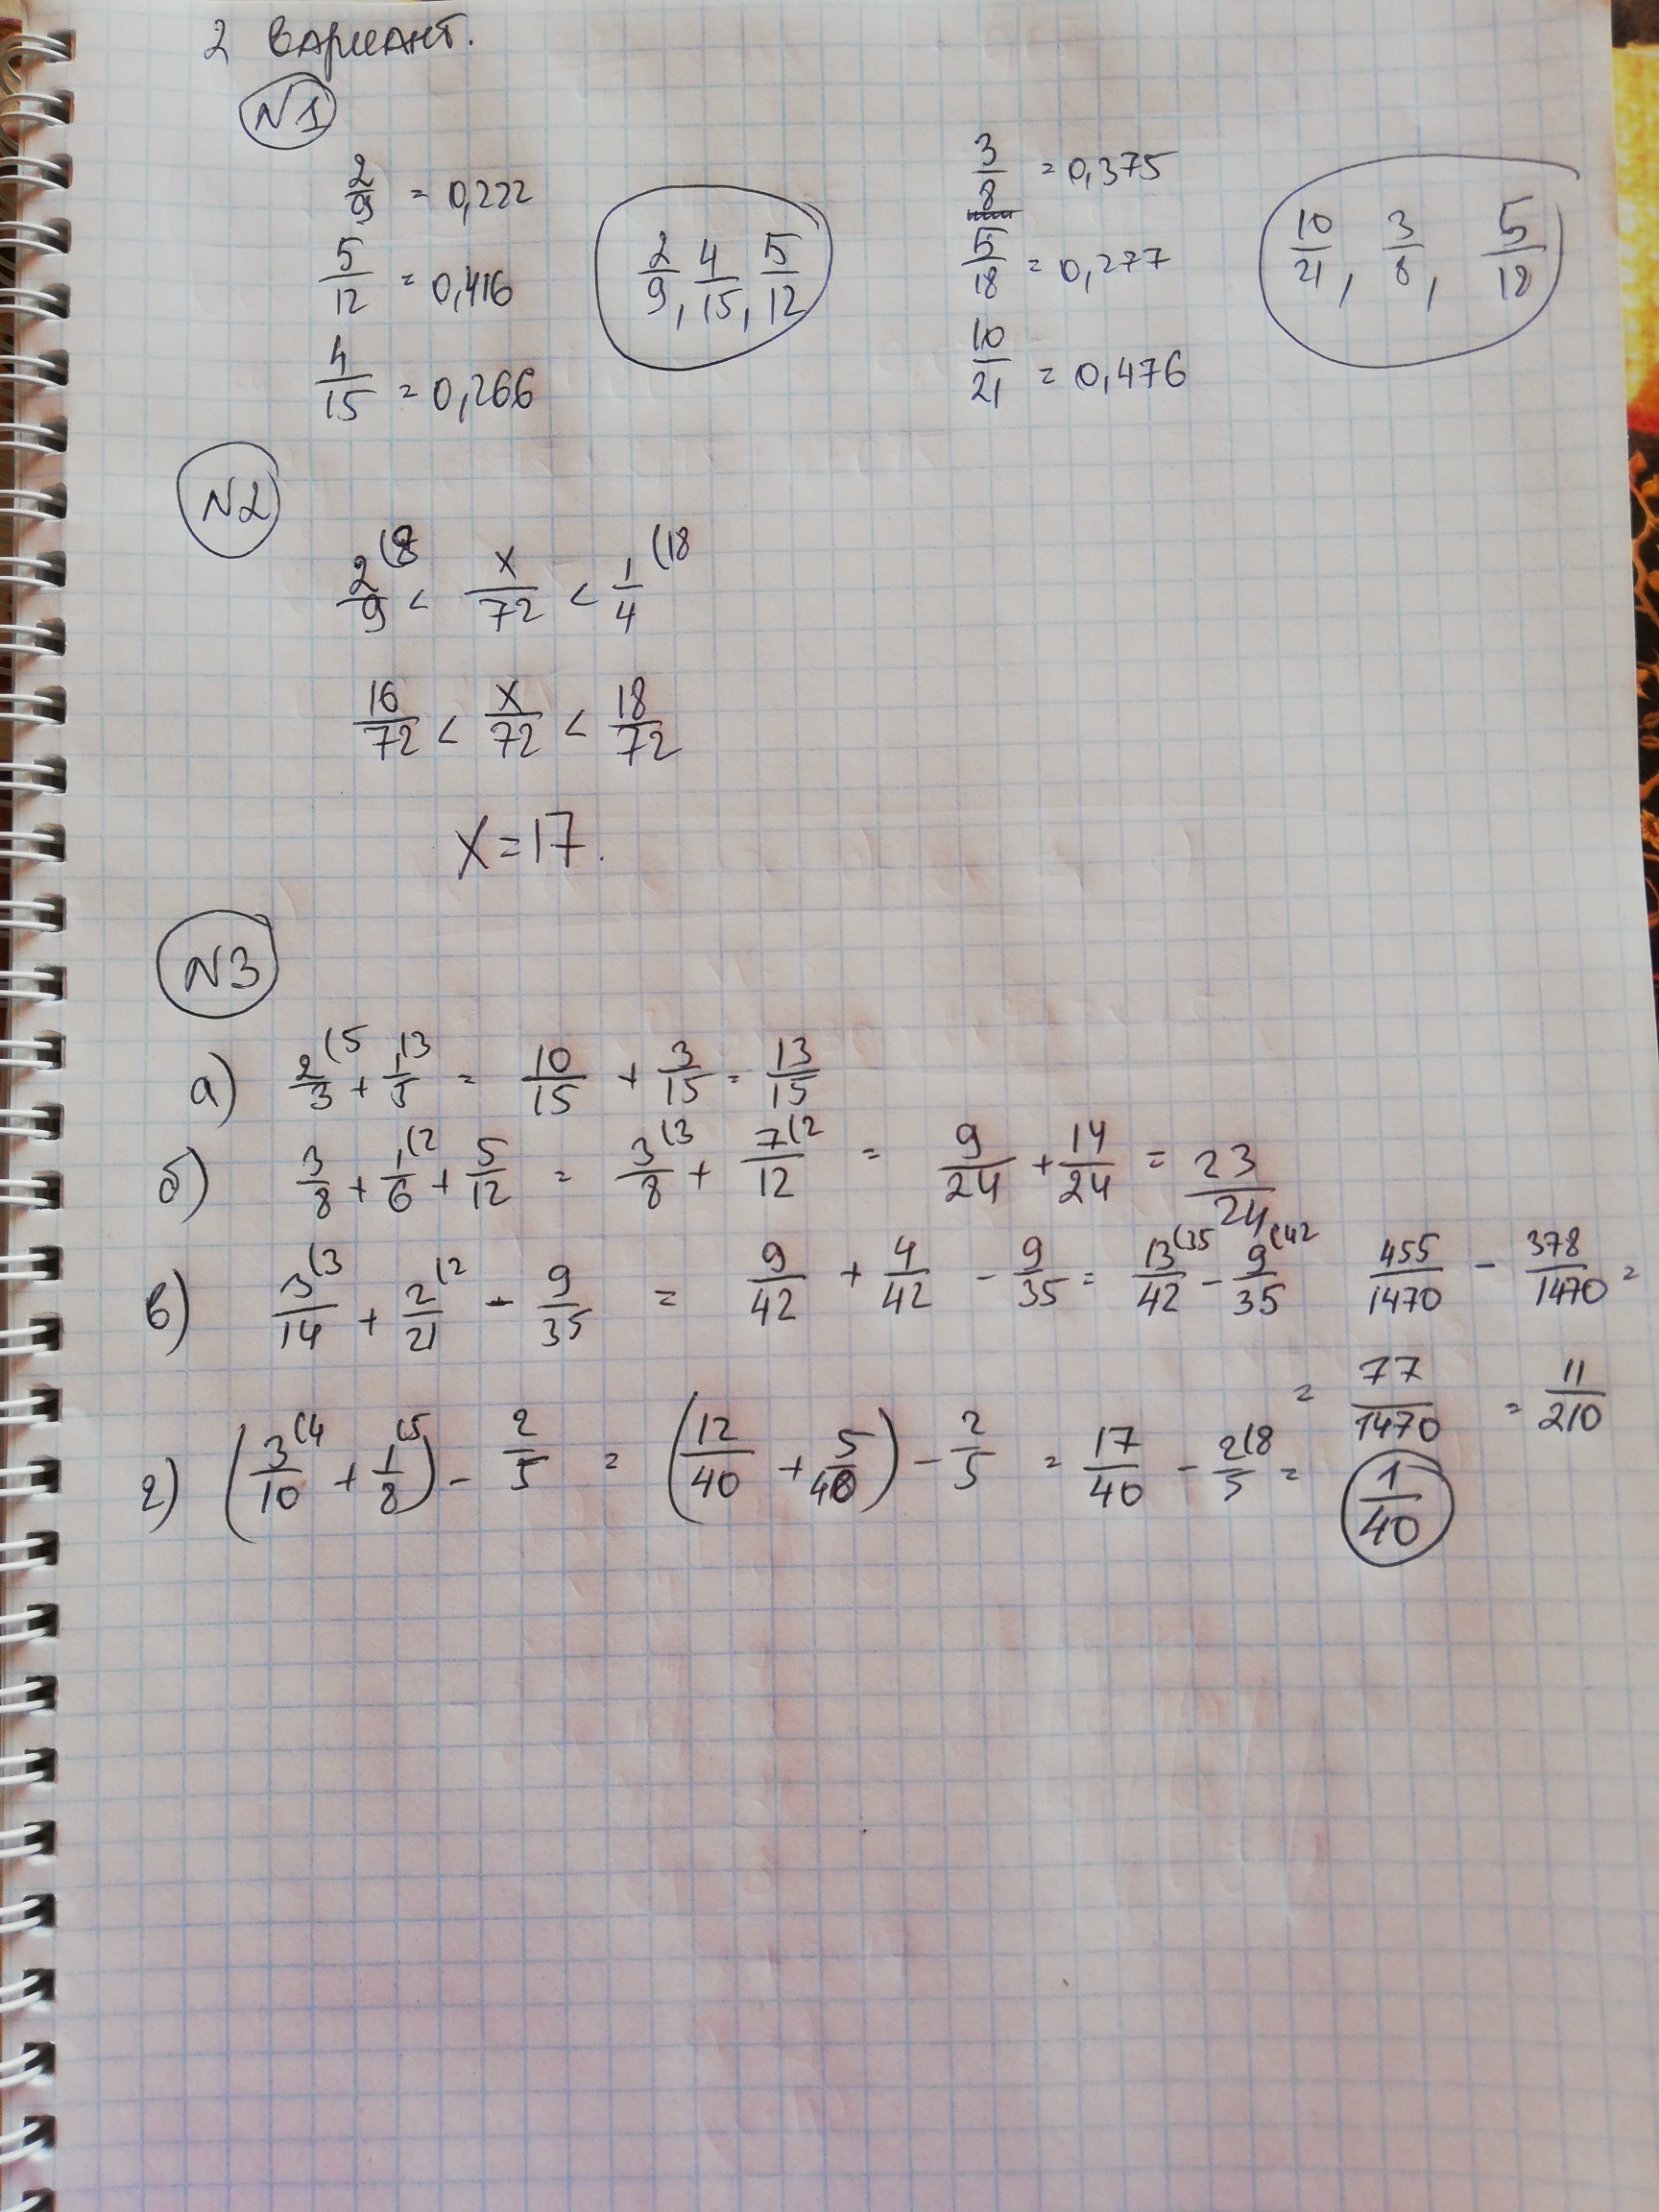 2 вариант.
N1
2/9 = 0,222
5/12 = 0,416
4/15 = 0,266
2/9, 4/15, 5/12
3/8 = 0,375
5/18 = 0,277
10/21 = 0,476
10/21, 3/8, 5/18
N2
2/9(8 < x/72 < 1/4(18
16/72 < x/72 < 18/72
x=17.
N3
а) 2/3(5 + 1/5(3 = 10/15 + 3/15 = 13/15
б) 3/8 + 1/6(2 + 5/12 = 3/8(3 + 7/12(2 = 9/24 + 14/24 = 23/24
в) 3/14(3 + 2/21(2 - 9/35 = 9/42 + 4/42 - 9/35 = 13/42(35 - 9/35(42 455/1470 - 378/1470 =
= 77/1470 = 11/210
г) (3/10(4 + 1/8(5) - 2/5 = (12/40 + 5/40) - 2/5 = 17/40 - 2/5(8 = 1/40